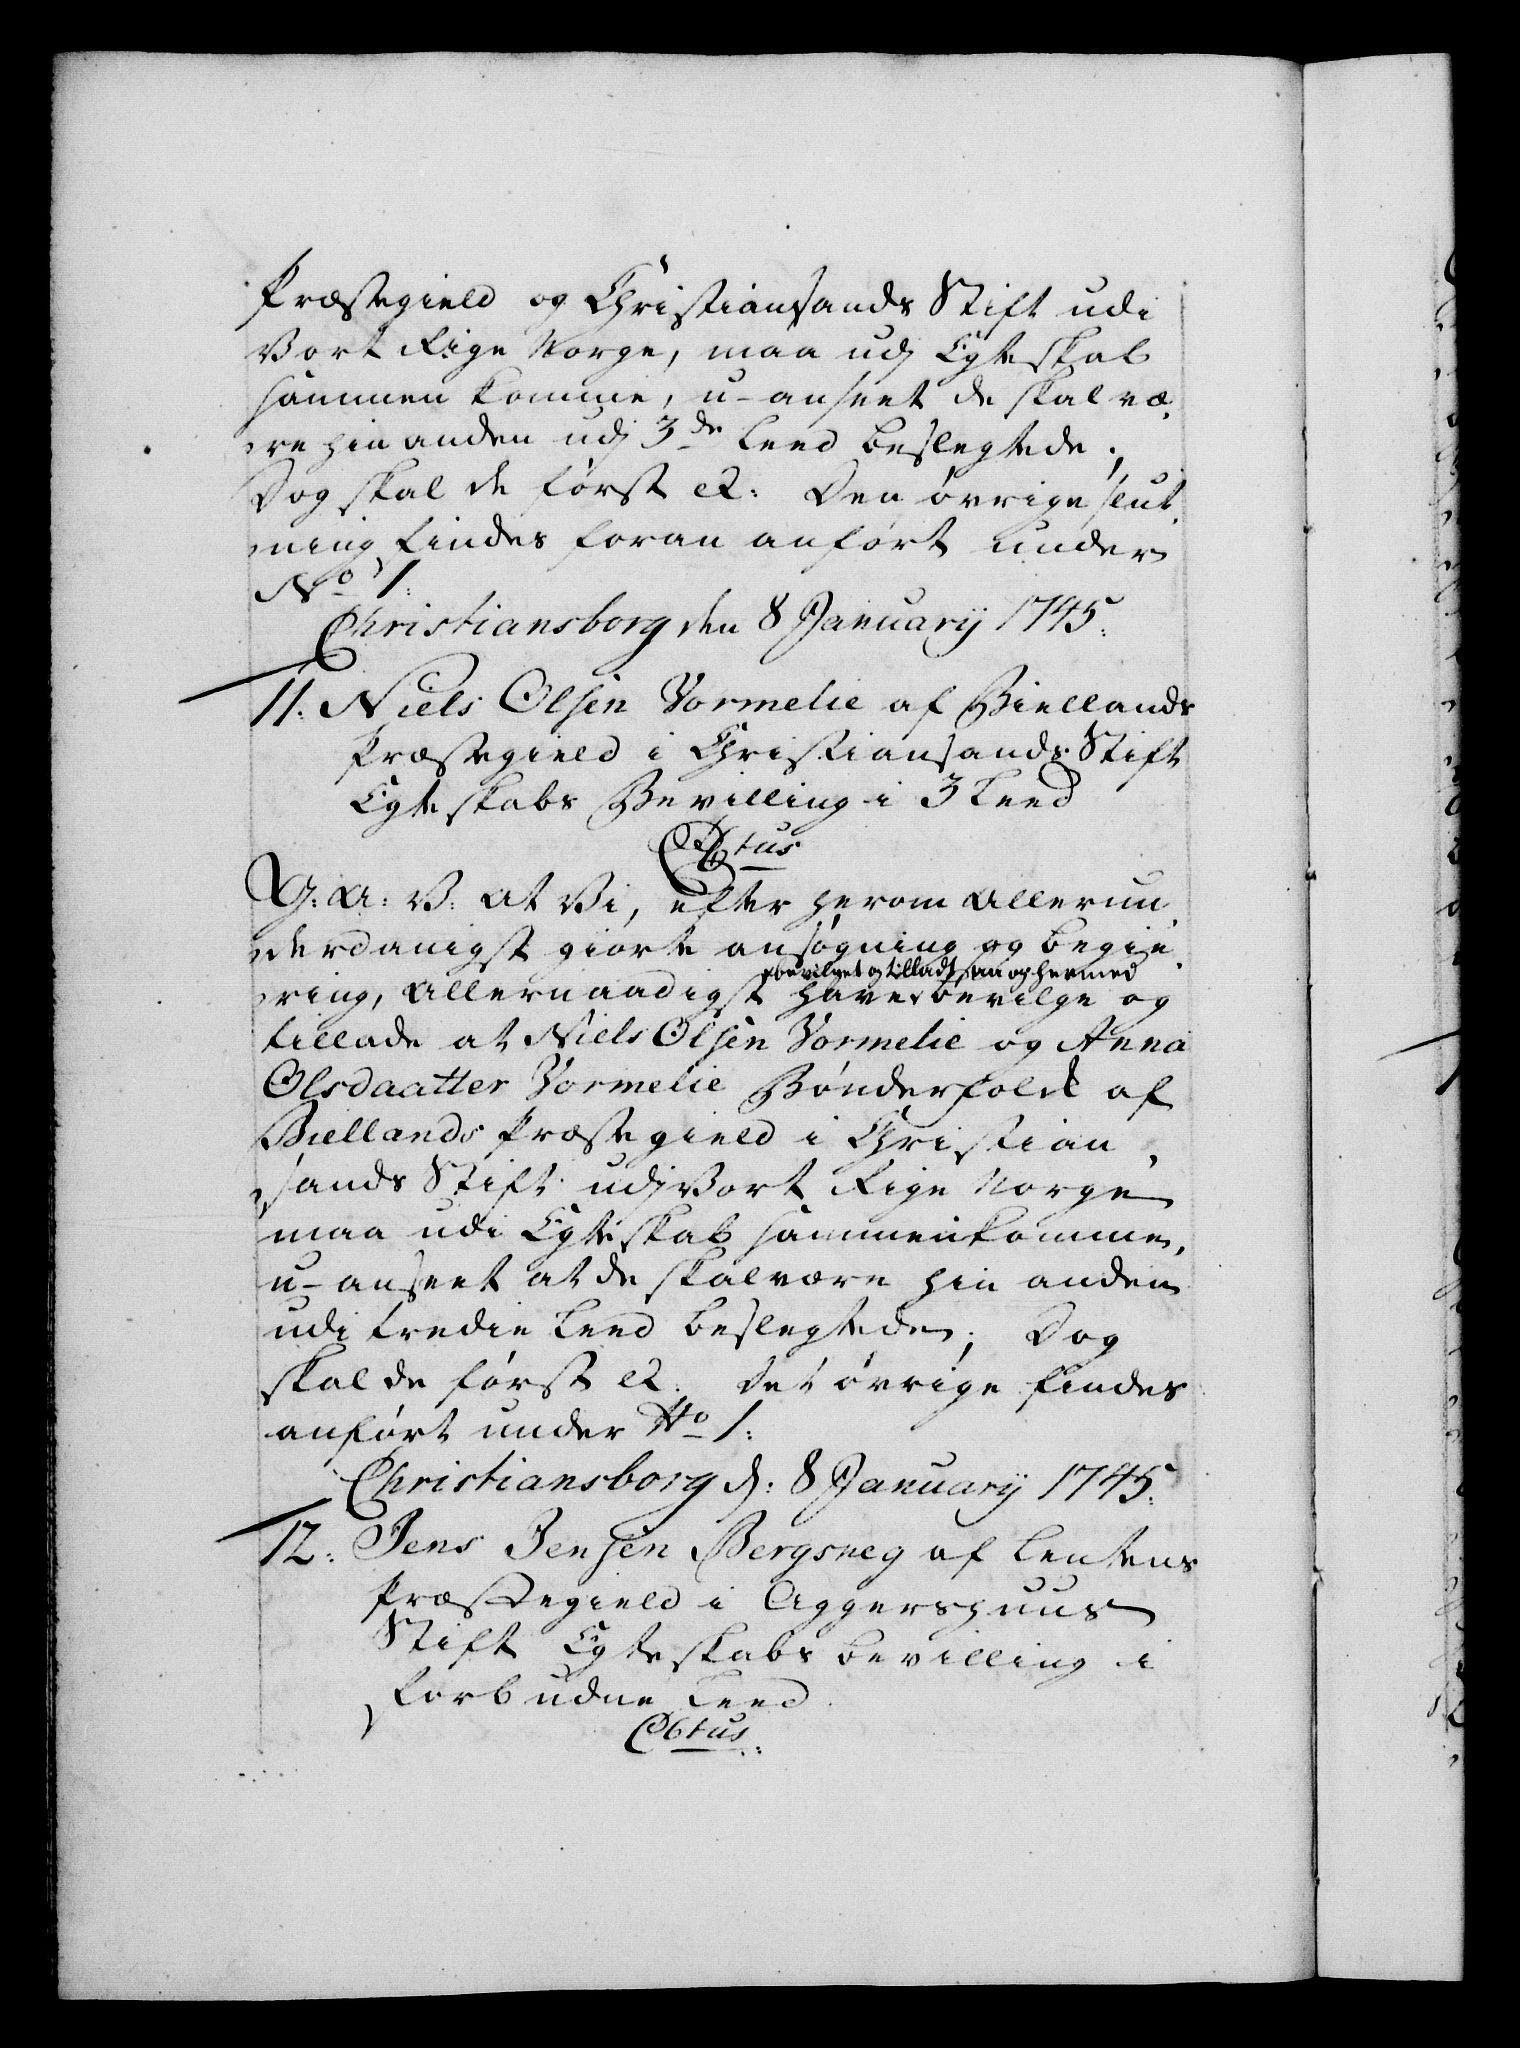 Præstegield og Christiansands Stift udi
Vort Rige Norge, maa udj Egteskab
sammen komme, u-anseet de skal væ-
re hinanden udj 3de Leed beslegtede;
Dog skal de først &: Den øvrige slut-
ning findes foran anført under
No 1:
Christiansborg den 8 January 1745:
11: Niels Olsen Vormelie af Biellands
Præstegield i Christiansands Stift
Egteskabs Bevilling i 3 Leed
Obtus
G: A: V: at Vi, efter herom Allerun-
derdanigst giorte ansøgning og begie-
bevilget og tilladt, saa og hermed
ring, Allernaadigst have bevilge og
tillade at Niels Olsen Vormelie og Anna
Olsdaatter Vormelie Bønderfolck af
Biellands Præstegield i Christian-
sands Stift udj Vort Rige Norge
maa udi Egteskab sammenkomme,
u-anseet at de skal være hin anden
udi tredie Leed beslegtede; Dog
skal de først &. Det øvrige findes
anført under No 1:
Christiansborg d: 8 January 1745:
12: Jens Jensen Bergsneg af Leutens
Præstegield i Aggershuus
Stift Egteskabs bevilling i
forbudne Leed
Obtus